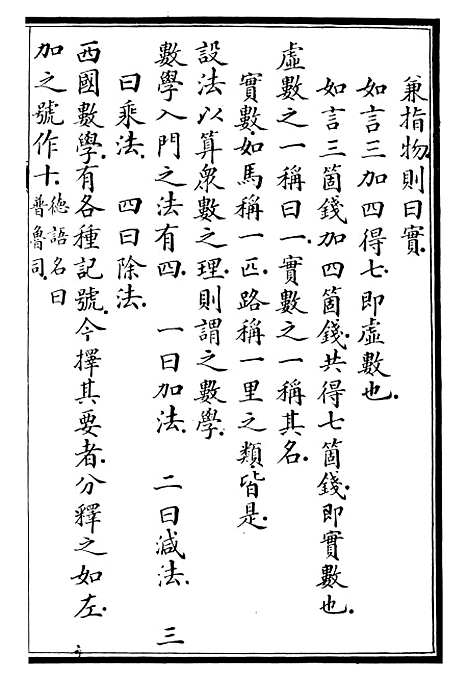 兼指物則曰實.
如言三加四得七.即虛數也.
如言三箇錢加四箇錢.共得七箇錢.即實數也.
虛數之一稱曰一.實數之一稱其名.
實數如馬稱一匹.路稱一里之類皆是.
設法以算衆數之理.則謂之數學.
數學入門之法有四. 一曰加法. 二曰減法. 三
曰乘法. 四曰除法.
西國數學.有各種記號.今擇其要者.分釋之如左.
加之號作十.德語名曰
普魯司.